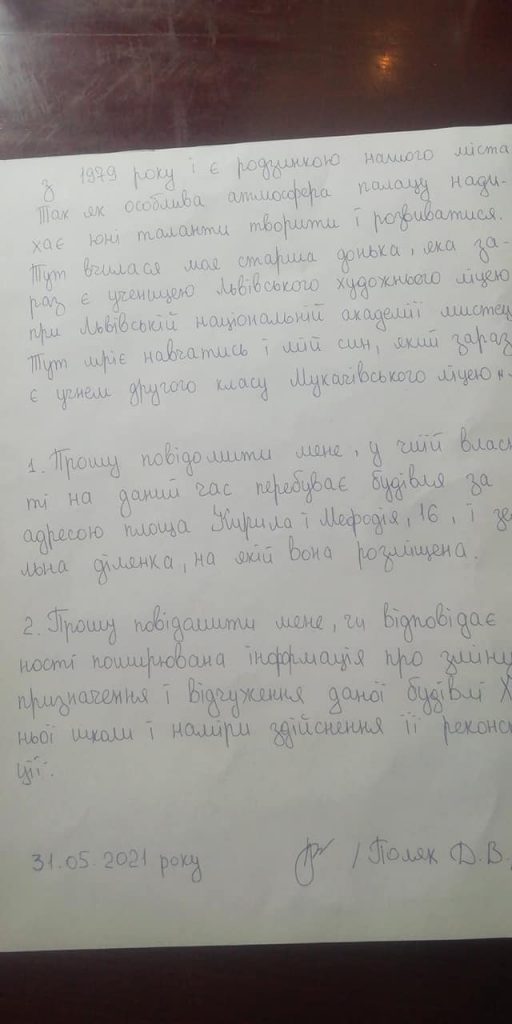 з 1979 року і є родзинкою нашого міста
Так як особлива атмосфера палацу нади-
хає юні таланти творити і розвиватися.
Тут вчилася моя старша донька, яка за-
раз є ученицею Львівського художнього ліцею
при Львівській національній академії мистец
Тут мріє навчатись і мій син, який зараз
є учнем другого класу Мукачівського ліцею
1. Прошу повідомити мене, у чиїй власн
ті на даний час перебуває будівля за
адресою площа Кирила і Мефодія, 16, і зе
льна ділянка, на якій вона розміщена.
2. Прошу повідомити мене, чи відповідає
ності поширювана інформація про зміну
призначення і відчуження даної будівлі Х
ньої школи і наміри здійснення її реконс
ції.
31.05.2021 року / Поляк Д.В.